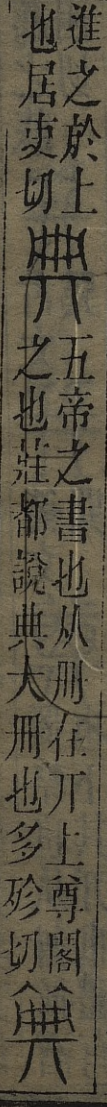 進之於上
也居吏切
典
五帝之書也从冊在丌上尊閣
之也莊都說典大冊也多殄切